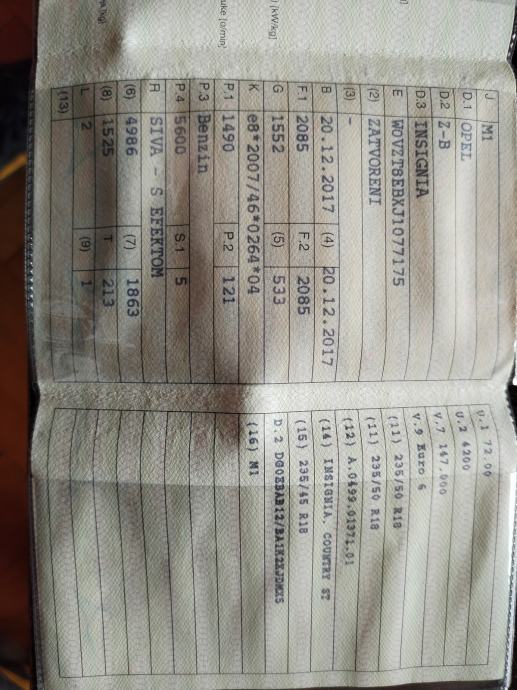 J M1
D.1 OPEL
D.2 Z-B
D.3 INSIGNIA
E W0VZT8EBXJ1077175
(2) ZATVORENI
(3) -
B 20.12.2017 (4) 20.12.2017
F.1 2085 F.2 2085
G 1552 (5) 533
K e8*2007/46*0264*04
P.1 1490 P.2 121
P.3 Benzin
P.4 5600 S.1 5
R SIVA - S EFEKTOM
(6) 4986 (7) 1863
(8) 1525 T 213
L 2 (9) 1
(13)
[kW/kg]
[o/min]
U.1 72.00
U.2 4200
V.7 147.000
V.9 Euro 6
(11) 235/50 R18
(11) 235/50 R18
(12) A.0499.01371.01
(14) INSIGNIA, COUNTRY ST
(15) 235/45 R18
(16) M1